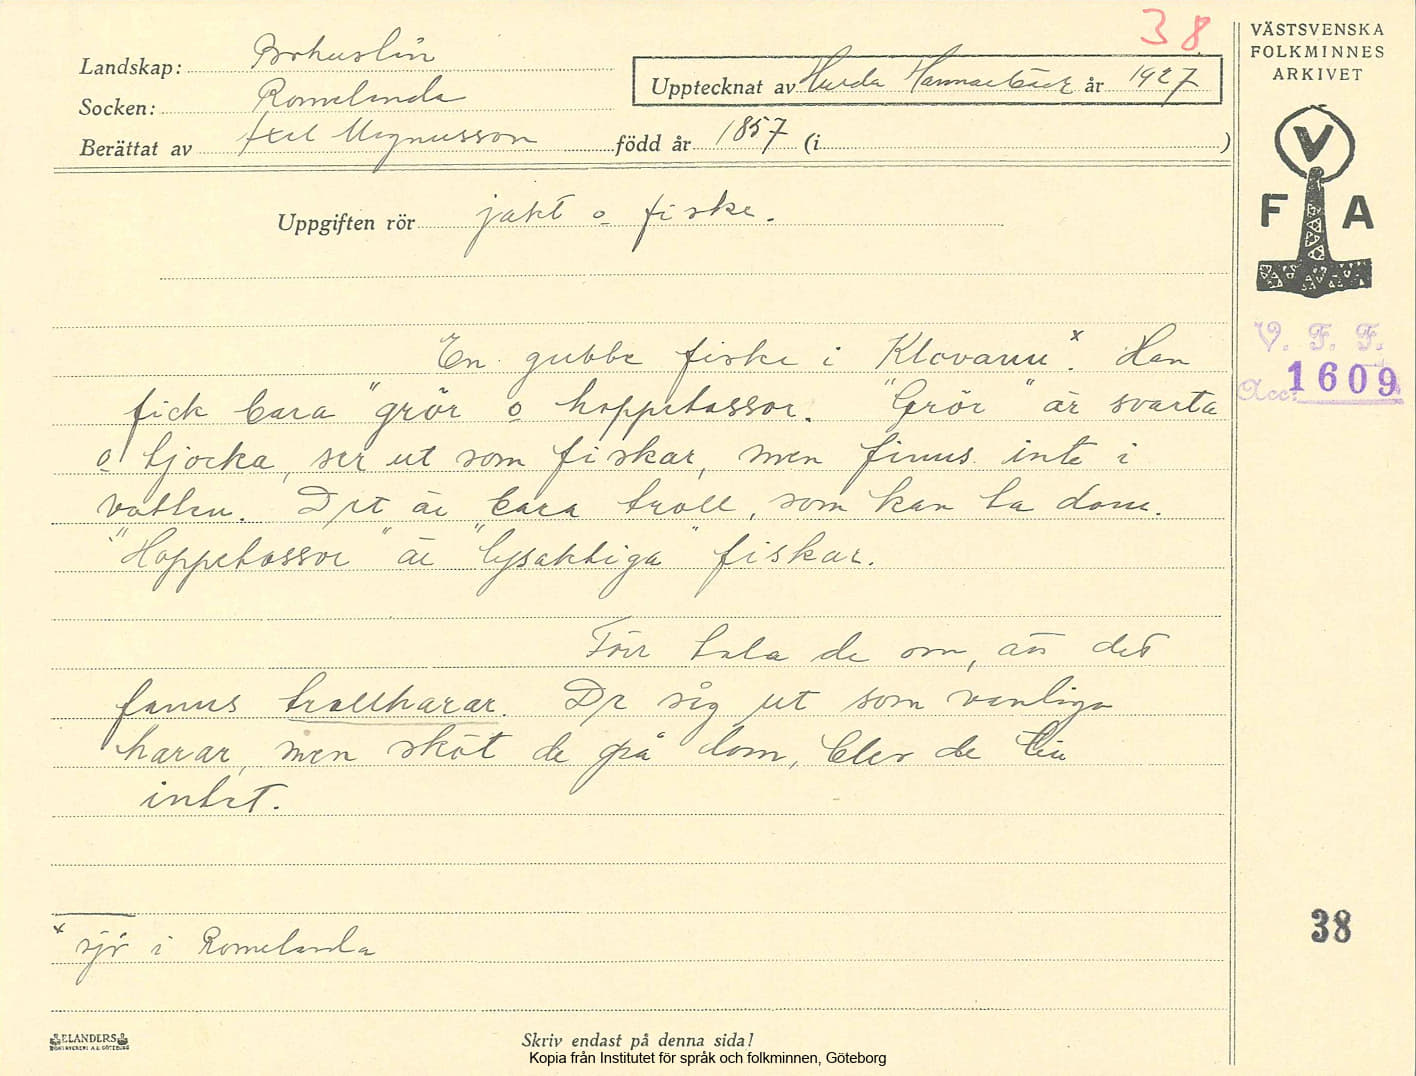 38
VÄSTSVENSKA
FOLKMINNES
ARKIVET
Landskap: Bohuslän
Socken: Romelanda
Upptecknat av Hulda Hammarbäck år 1927
Berättat av Axel Magnusson född år 1857 (i )
V
F A
Uppgiften rör jakt o fiske.
V. F. F.
Acc. 1609
En gubbe fiske i Klovann x. Han
fick bara "grör o hoppetossor. "Grör" är svarta
o tjocka, ser ut som fiskar, men finns inte i
vatten. Det är bara troll, som kan ta dom.
"Hoppetossor" är "lysaktiga" fiskar.
Förr tala de om, att det
fanns trollharar. De såg ut som vanliga
harar, men sköt de på dom, blev de till
intet.
38
x sjö i Romelanda
ELANDERS
BOKTRYCKERI A.B. GÖTEBORG
Skriv endast på denna sida!
Kopia från Institutet för språk och folkminnen, Göteborg